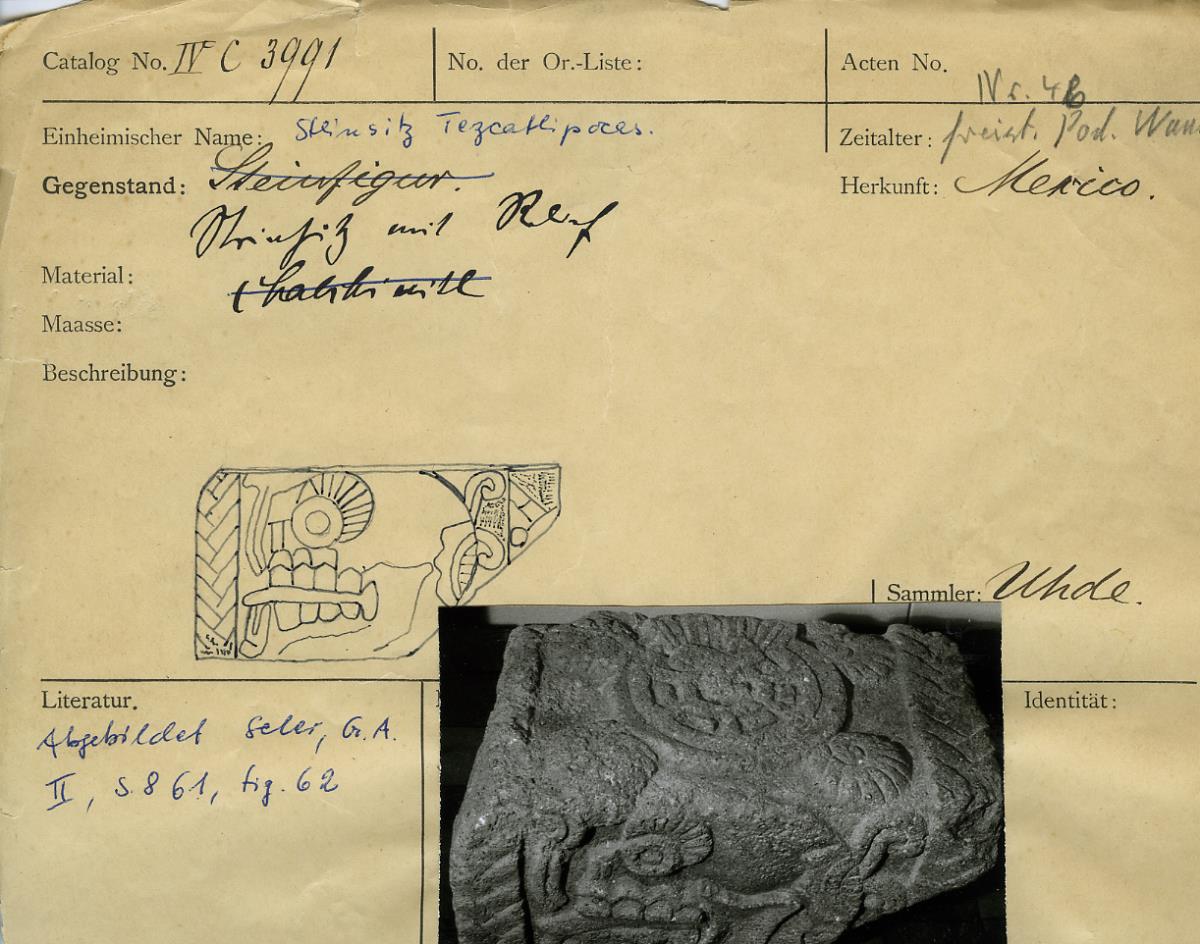 Catalog No. IV C 3991
No. der Or.-Liste:
Acten No.
IV c. 4
Einheimischer Name: Steinsitz Tezcatlipocas.
Zeitalter: freist. Pod.
Gegenstand: Steinfigur.
Herkunft: Mexico.
Steinsitz mit Relief
Material:
Maasse:
Beschreibung:
Sammler: Uhde.
Literatur.
Identität:
Abgebildet Seler, G. A.
II, S. 861, fig. 62